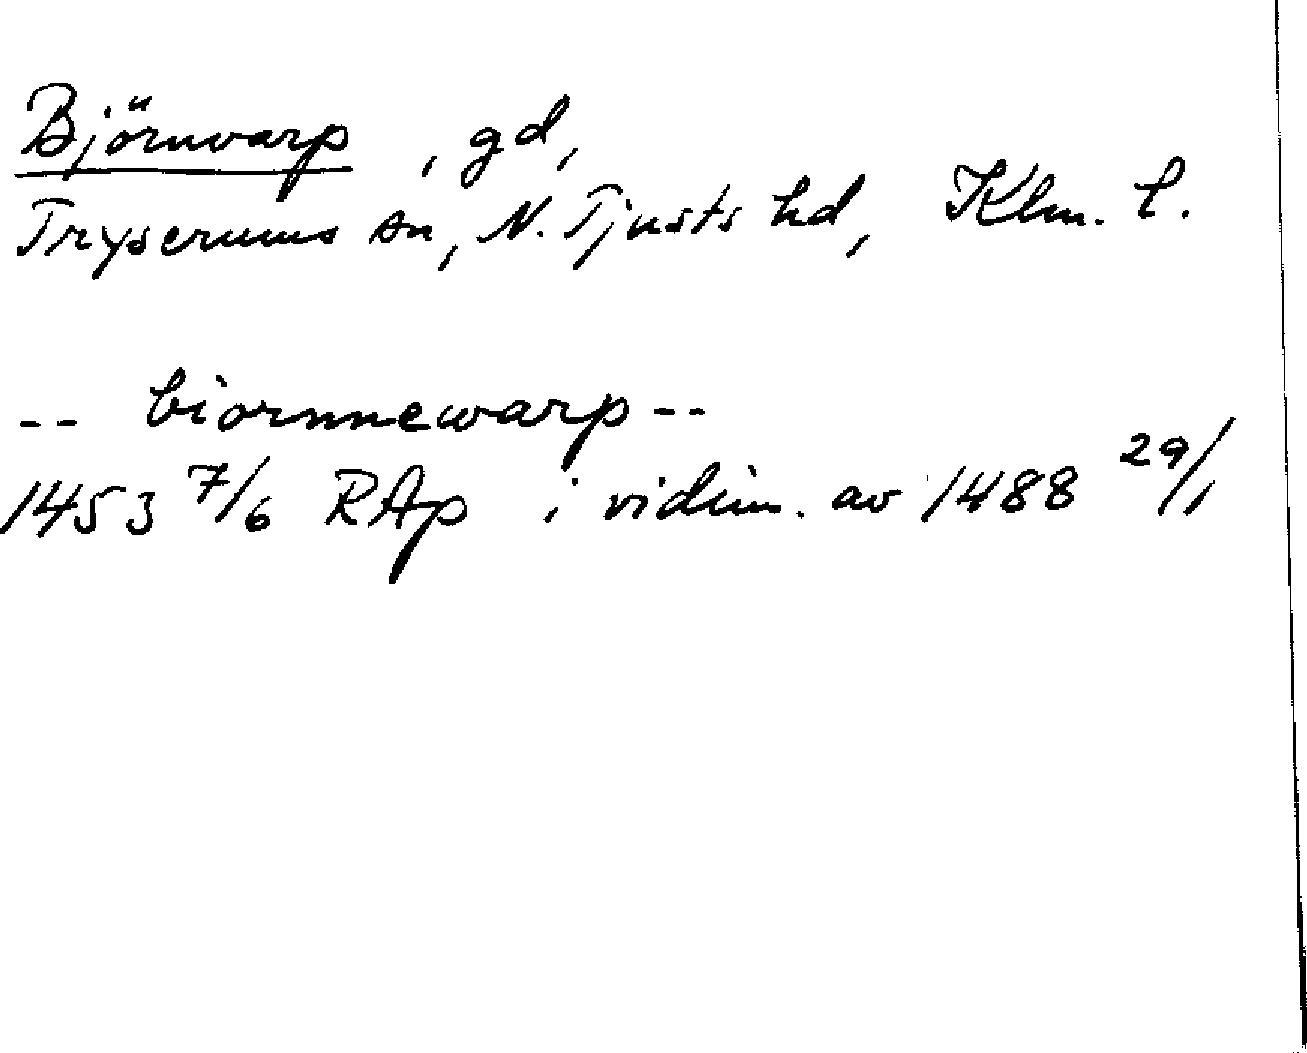 Björnvarp, gd,
Tryserums sn, N. Tjusts hd, Klm. l.
-- biornnewarp --
1453 7/6 RAp i vidim. av 1488 29/1